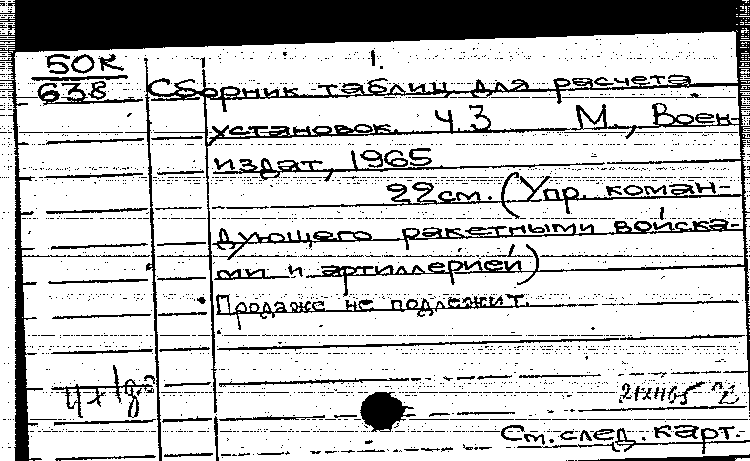 1.
50К
638 Сборник таблиц для расчета
установок. Ч.3 М., Воен-
издат, 1965.
22см. (Упр. коман-
дующего ракетными войска-
ми и артиллерией)
Продаже не подлежит.
Ст.след.карт.